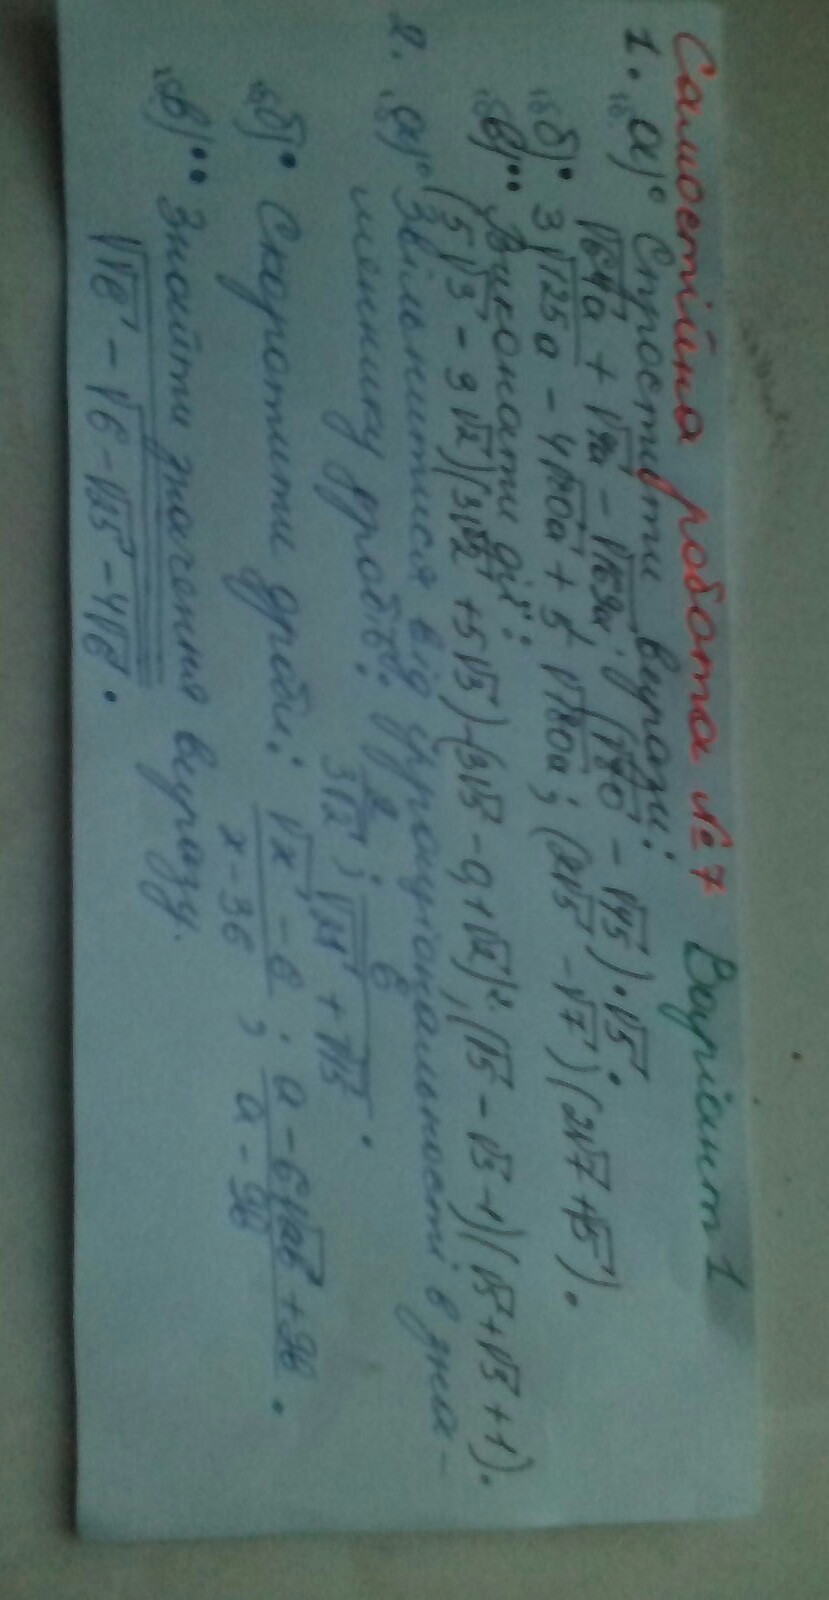 Самостійна робота №7 Варіант 1
1. а)° Спростити вирази:
√64a + √9a − √169a; (√80 − √45)·√5;
б)• 3√125a − 4√20a + 5√180a; (2√5 − √7)(2√7 + √5).
в)•• Виконати дії:
(5√3 − 3√2)(3√2 + 5√3) − √5 − √3 − 1)(√5 + √3 + 1).
2. а)° Звільнитися від ірраціональності в зна-
меннику дробів: 2/3√2; 6/√21 + √15.
б)• Скоротити дроби: √x − 6/x − 36; a − 6√ab + 9b/a − 9b.
в)•• Знайти значення виразу.